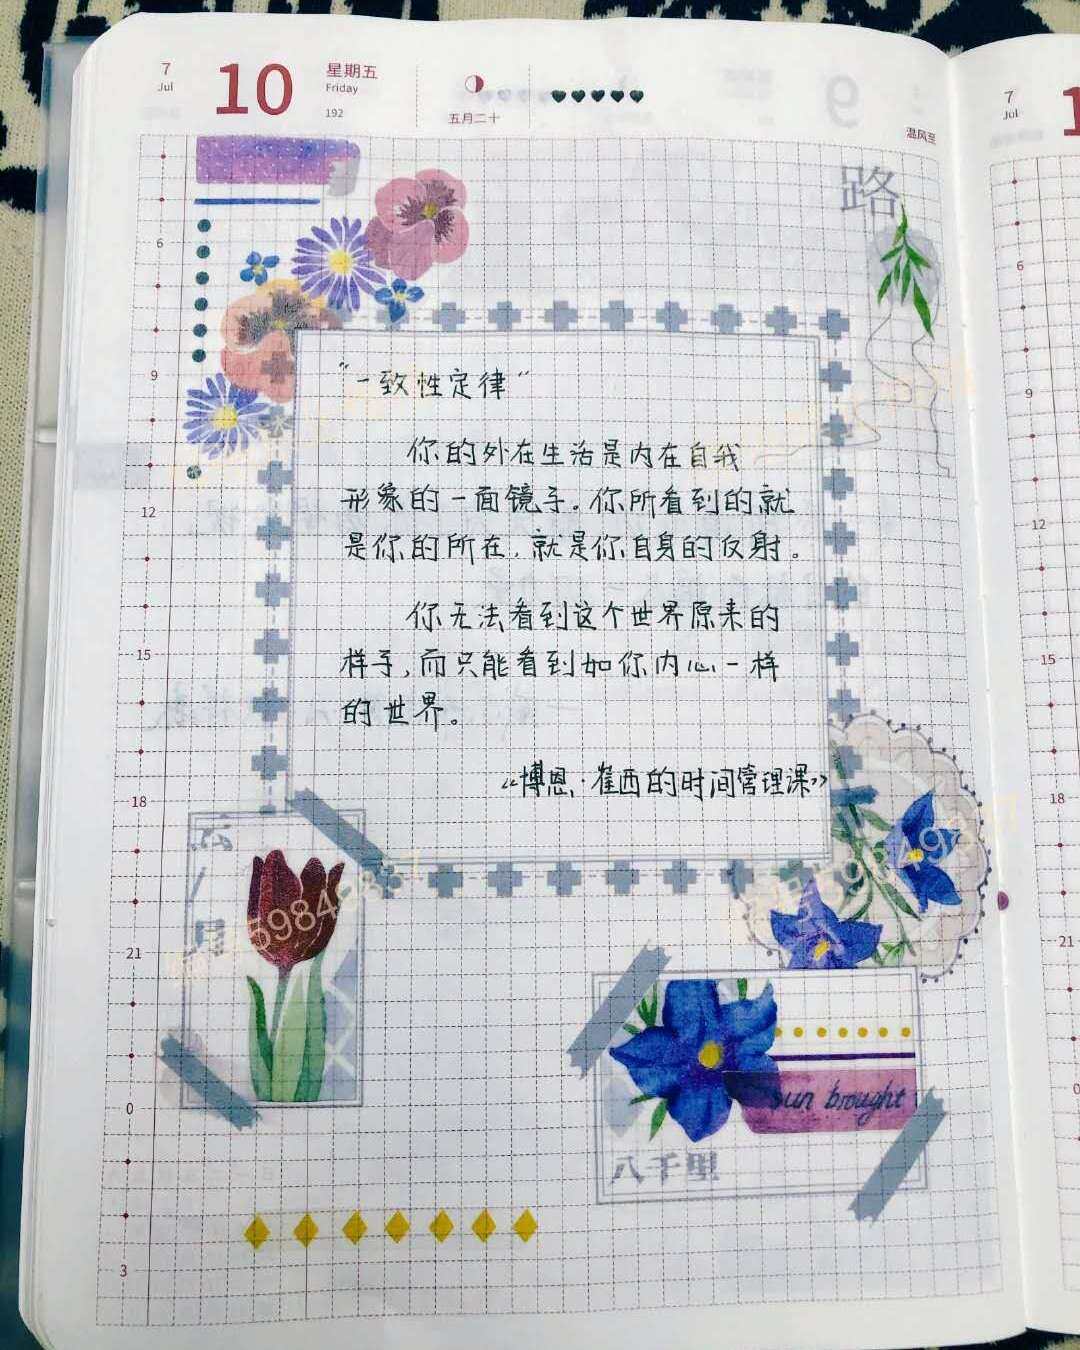 7
Jul
10
星期五
Friday
192
五月二十
温风至
7
Jul
路
"一致性定律"
你的外在生活是内在自我
形象的一面镜子。你所看到的就
是你的所在，就是你自身的反射。
你无法看到这个世界原来的
样子，而只能看到如你内心一样
的世界。
《博恩·崔西的时间管理课》
sun brought
八千里
6
9
12
15
18
21
0
3
6
9
12
15
18
21